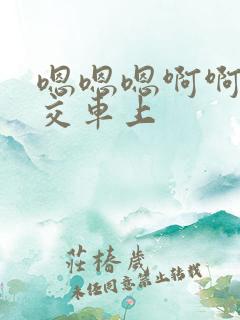 嗯嗯嗯啊啊
交车上
莊椿歲
未经同意禁止转载